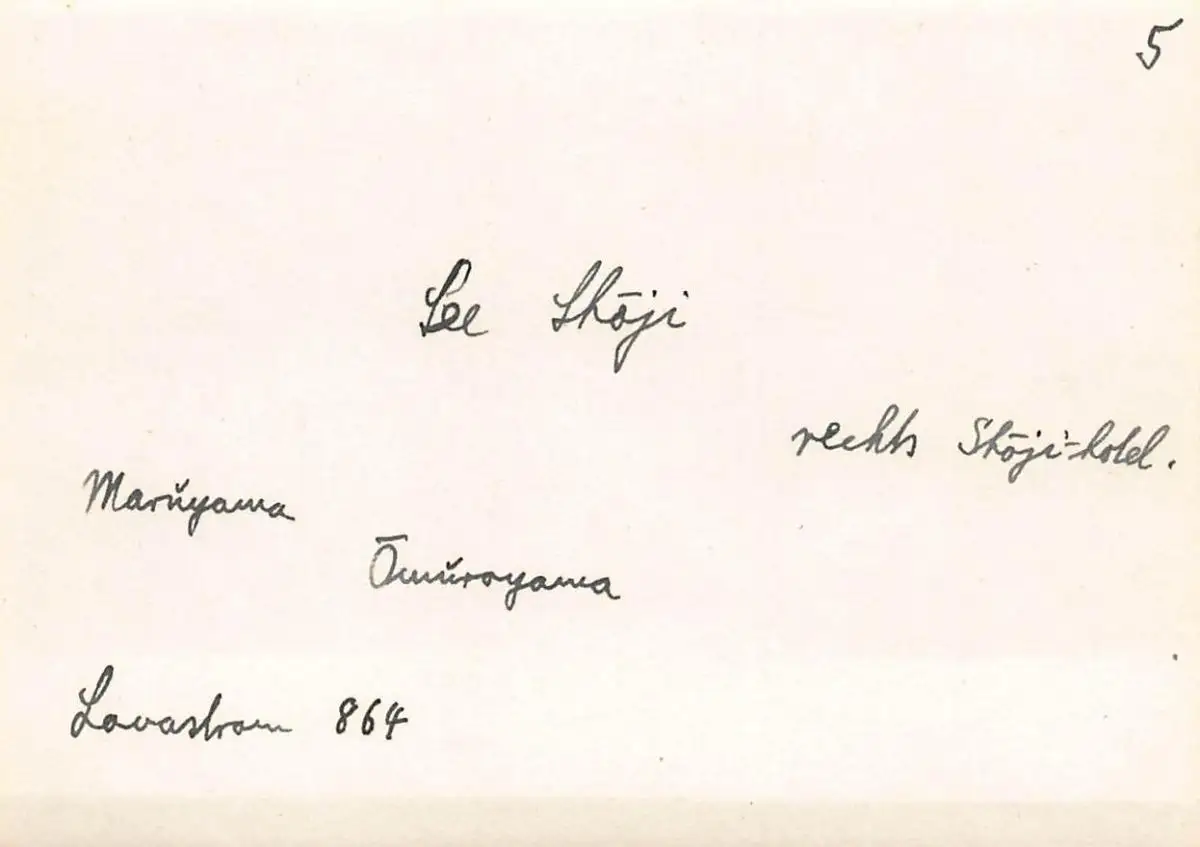 5
See Shōji
rechts Shōji-hotel.
Marŭyama
Ōmŭroyama
Lavastrom 864